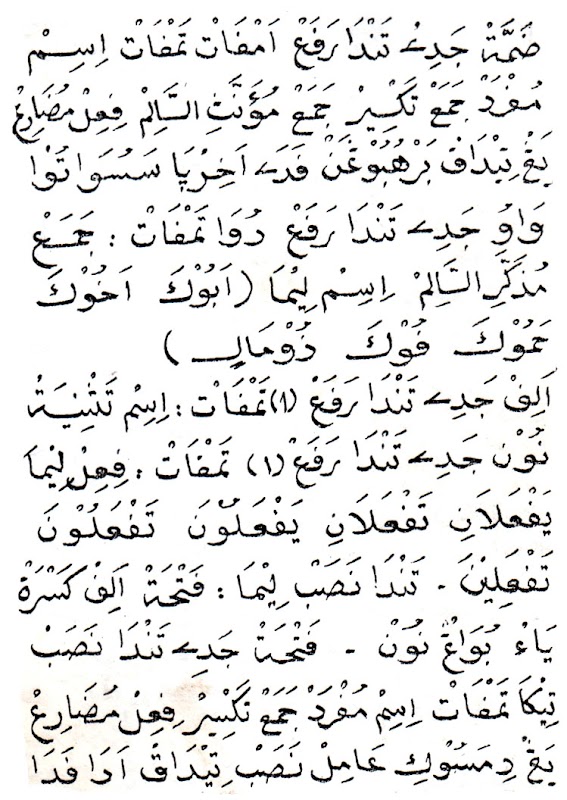 ضَمَّةْ جَدِےْ تَنْدَا رَفَعْ اَمْفَاتْ تَمْفَاتْ اِسِمْ
مُفْرَدْ جَمَعْ تَكْسِيْرْ جَمَعْ مُؤَنَّثِ السَّالِمْ فِعِلْ مُضَارِعْ
يَڠْ تِيْدَاقْ بَرْهُبُوْڠَنْ فَدَےْ اَخِرْيَا سَسُوَاتُوْا
وَاوُ جَدِےْ تَنْدَا رَفَعْ دُوَا تَمْفَاتْ : جَمَعْ
مُذَكَّرِ السَّالِمْ اِسِمْ لِيْمَا (اَبُوْكَ اَخُوْكَ
حَمُوْكَ فُوْكَ ذُوْمَالٍ )
اَلِفْ جَدِےْ تَنْدَا رَفَعْ (١) تَمْفَاتْ : اِسِمْ تَثْنِيَةْ
نُوْنْ جَدِےْ تَنْدَا رَفَعْ (١) تَمْفَاتْ : فِعِلْ لِيْمَا
يَفْعَلَانِ تَفْعَلَانِ يَفْعَلُوْنَ تَفْعَلُوْنَ
تَفْعَلِيْنَ - تَنْدَا نَصَبْ لِيْمَا : فَتْحَةْ اَلِفْ كَسْرَةْ
يَاءْ بُوَاڠْ نُوْنْ - فَتْحَةْ جَدِےْ تَنْدَا نَصَبْ
تِيْكَا تَمْفَاتْ اِسِمْ مُفْرَدْ جَمَعْ تَكْسِيْرْ فِعِلْ مُضَارِعْ
يَڠْ دِمَسُوْكِ عَامِلْ نَصَبْ تِيْدَاقْ اَدَا فَدَا